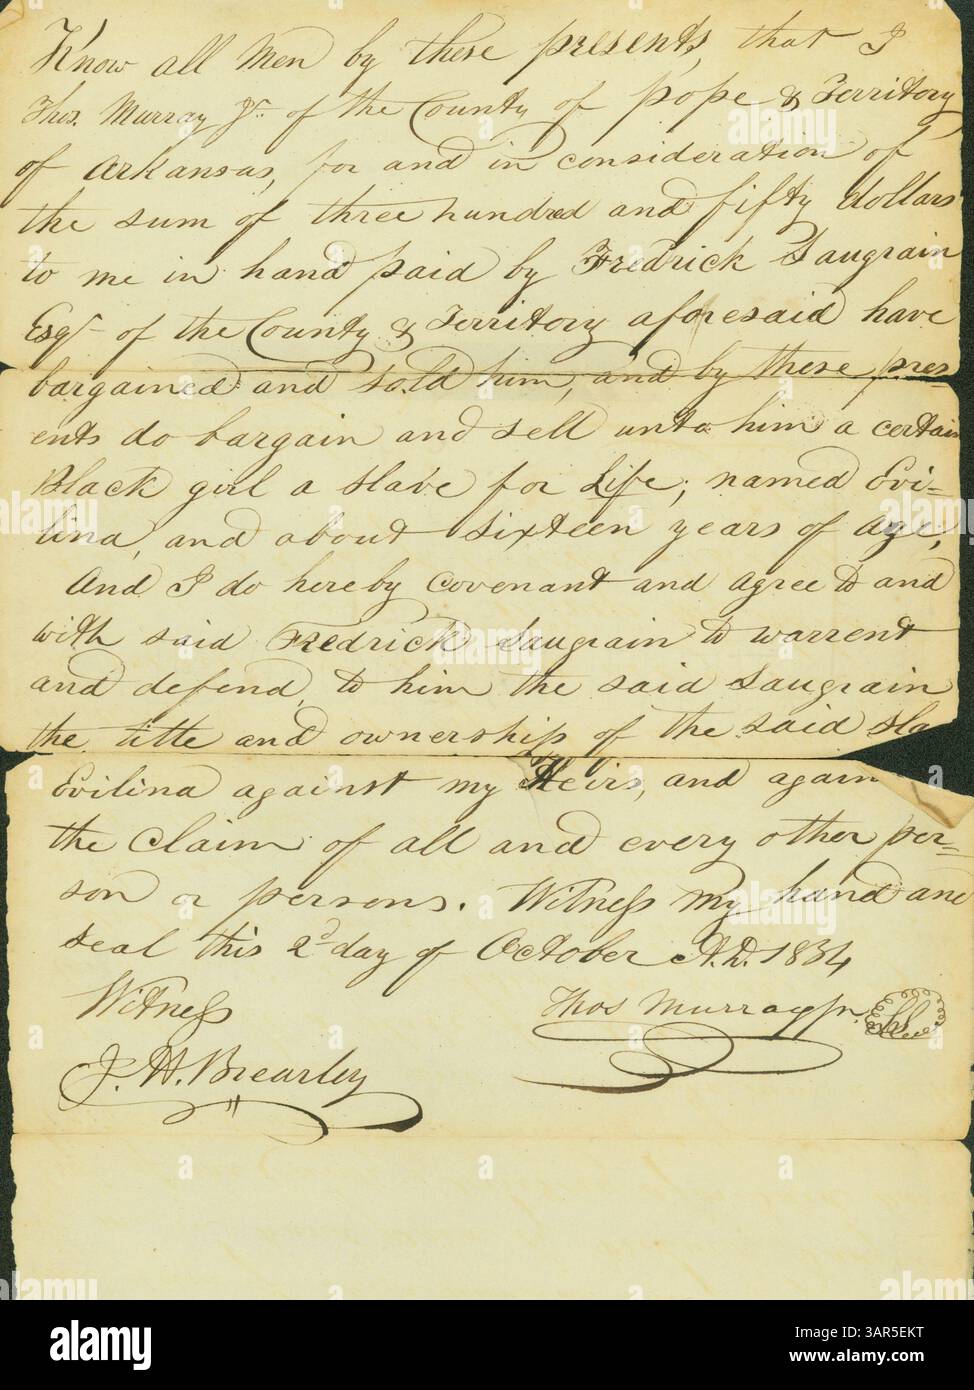 Know all Men by these presents, that I
Thos. Murray Jr. of the County of pope & Territory
of Arkansas, for and in consideration of
the sum of three hundred and fifty dollars
to me in hand paid by Fredrick Saugrain
Esqr. of the County & Territory aforesaid have
bargained and sold him, and by these pres-
ents do bargain and sell unto him a certain
Black girl a slave for Life; named Evi=
lina, and about sixteen years of age;
And I do hereby covenant and agree to and
with said Fredrick Saugrain to warrent
and defend, to him the said Saugrain
the title and ownership of the said sla
Evilina against my Heirs, and again
the claim of all and every other per=
son or persons. Witness my hand and
seal this 2d day of October A.D. 1834
Witness
Thos Murray Jr.
J. H. Brearley
alamy
a
Image ID: 3AR5EKT
www.alamy.com